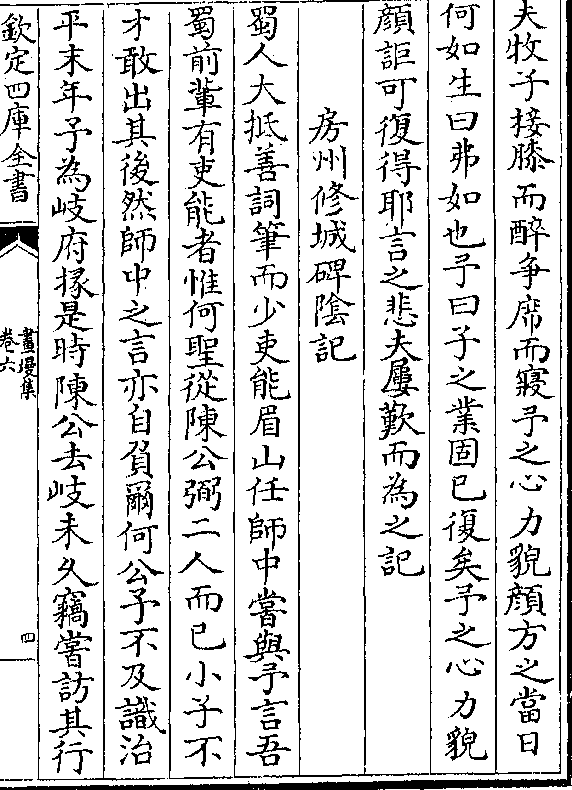 夫牧子接膝而醉争席而寢予之心力貌顔方之當日
何如生曰弗如也予曰子之業固已復矣予之心力貌
顔詎可復得耶言之悲夫屢歎而為之記
房州修城碑隂記
蜀人大抵善詞筆而少吏能眉山任師中嘗與予言吾
蜀前輩有吏能者惟何聖從陳公弼二人而已小子不
才敢出其後然師中之言亦自負爾何公予不及識治
平末年予為岐府掾是時陳公去岐未乆竊嘗訪其行
欽定四庫全書
畫墁集
卷六
四